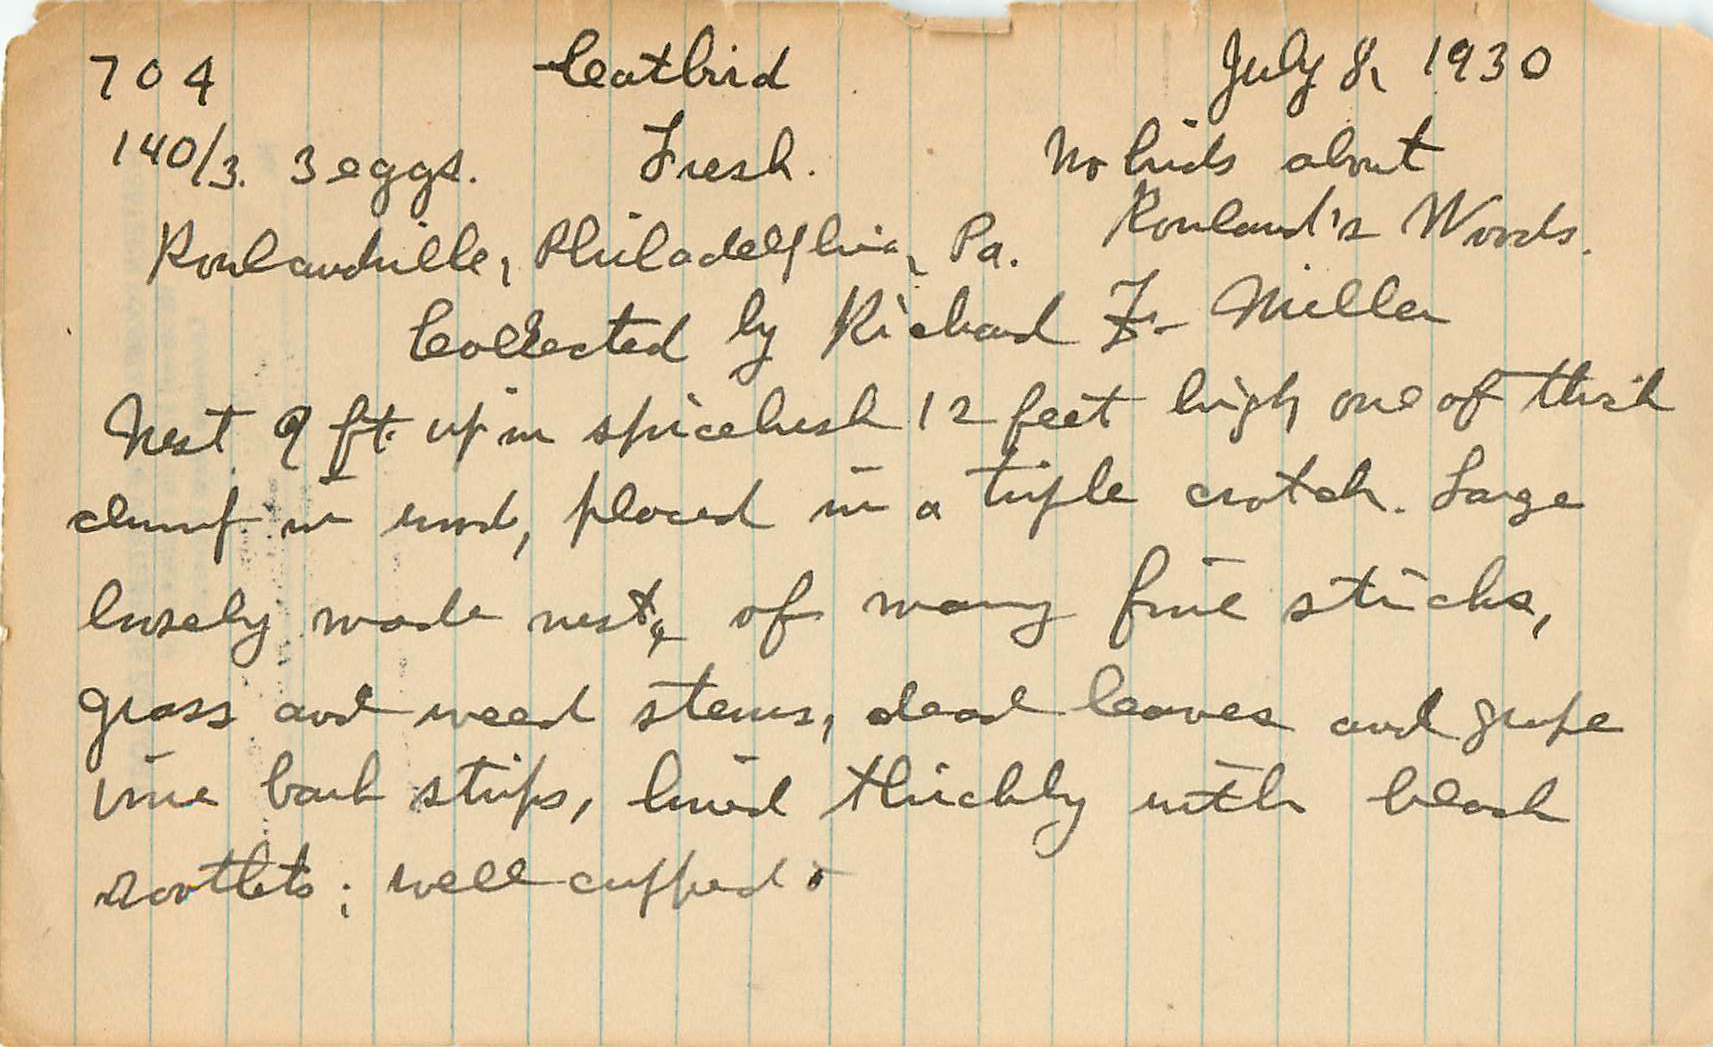 704 Catbird July 8, 1930
140/3. 3 eggs. Fresh. No birds about
Rowlandville, Philadelphia, Pa. Rowland's Woods.
Collected by Richard F. Miller
Nest 9 ft. up in spicebush 12 feet high, one of thick
clump in wood, placed in a triple crotch. Large
loosely made nest, of many fine sticks,
grass and weed stems, dead leaves and grape
vine bark strips, lined thickly with black
rootlets; well cupped.